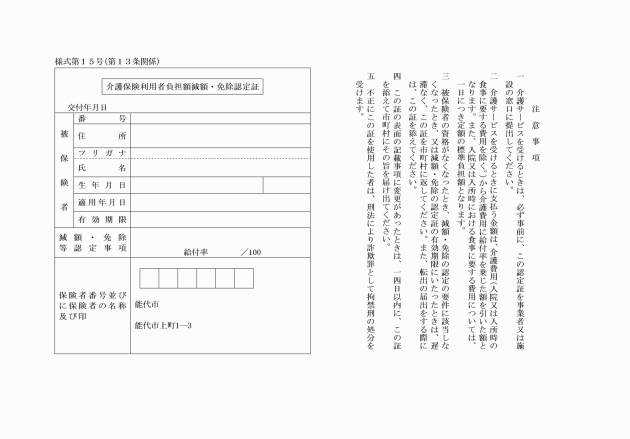 様式第15号(第13条関係)
介護保険利用者負担額減額・免除認定証
交付年月日
被保険者
番号
住所
フリガナ
氏名
生年月日
適用年月日
有効期限
減額・免除
等認定事項
給付率 /100
保険者番号並び
に保険者の名称
及び印
能代市
能代市上町1―3
注意事項
一 介護サービスを受けるときは、必ず事前に、この認定証を事業者又は施
設の窓口に提出してください。
二 介護サービスを受けるときに支払う金額は、介護費用(入院又は入所時の
食事に要する費用を除く。)から介護費用に給付率を乗じた額を引いた額と
なります。また、入院又は入所時における食事に要する費用については、
一日につき定額の標準負担額となります。
三 被保険者の資格がなくなったとき、減額・免除の認定の要件に該当しな
くなったとき、又は減額・免除の認定証の有効期限にいたったときは、遅
滞なく、この証を市町村に返してください。また、転出の届出をする際に
は、この証を添えてください。
四 この証の表面の記載事項に変更があったときは、一四日以内に、この証
を添えて市町村にその旨を届け出てください。
五 不正にこの証を使用した者は、刑法により詐欺罪として拘禁刑の処分を
受けます。